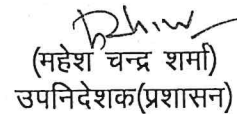 (महेश चन्द्र शर्मा)
उपनिदेशक(प्रशासन)